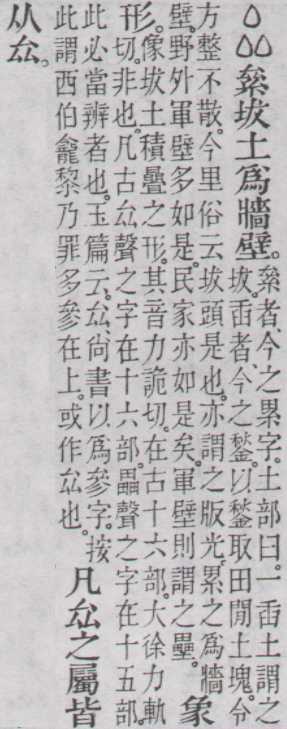 厽絫坺土爲牆壁。
絫者、今之累字。土部曰。一臿土謂之
坺。臿者、今之鍫。以鍫取田閒土塊。令
方整不散。今里俗云坺頭是也。亦謂之版光。累之爲牆
壁。野外軍壁多如是。民家亦如是矣。軍壁則謂之壘。
象
形。
像坺土積疊之形。其音力詭切。在古十六部。大徐力軌
切。非也。凡古厽聲之字在十六部。畾聲之字在十五部。
此必當辨者也。玉篇云。厽、尚書以爲參字。按
此謂西伯龕黎乃罪多參在上。或作厽也。
凡厽之屬皆
从厽。